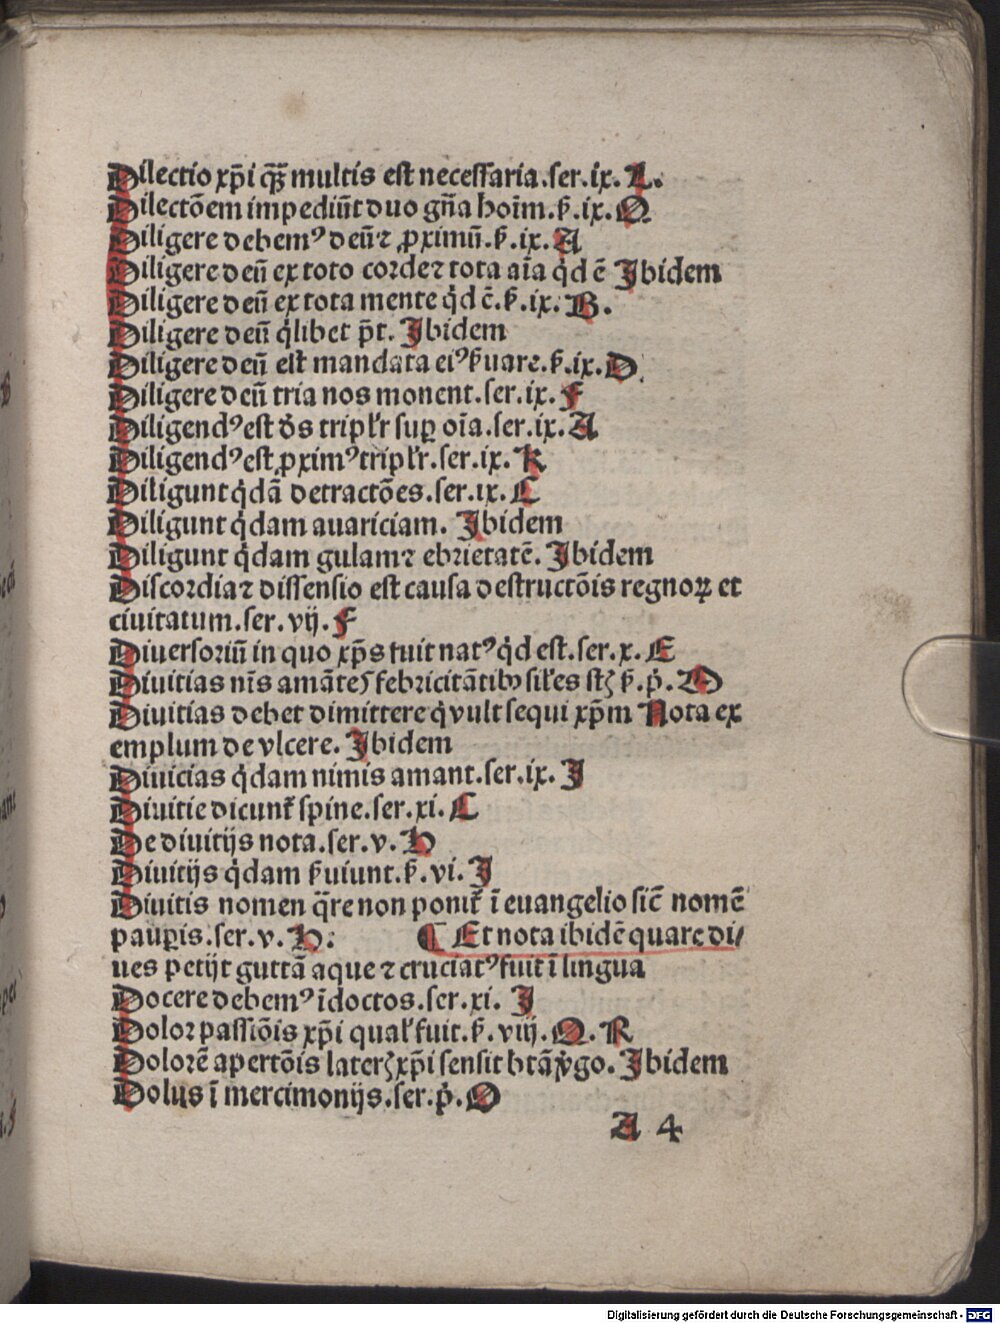 Dilectio xp̄i qꝫ̄ multis est necessaria.ser.ix.L.
Dilectōem impediūt duo gn̄a hoīm.ẜ.ix.Q
Diligere debemꝰ deū ⁊ ꝓximū.ẜ.ix.A
Diligere deū ex toto corde ⁊ tota aīa qd̓ ē Ibidem
Diligere deū ex tota mente qd̓ ē.ẜ.ix.B.
Diligere deū qͥlibet pt̄. Ibidem
Diligere deū est mandata eiꝰ ẜuare.ẜ.ix.D
Diligere deū tria nos monent.ser.ix.F
Diligendꝰ est ds̄ tripl̓r suꝑ oīa.ser.ix.A
Diligendꝰ est ꝓximꝰ tripl̓r.ser.ix.K
Diligunt qͥdā detractōes.ser.ix.C
Diligunt qͥdam auariciam. Ibidem
Diligunt qͥdam gulam ⁊ ebrietatē. Ibidem
Discordia ⁊ dissensio est causa destructōis regnoꝝ et
ciuitatum.ser.vij.F
Diuersoriū in quo xp̄s fuit natꝰ qd̓ est.ser.x.E
Diuitias nīs amātes febricitātibꝰ sil̓es st̄ ẜ.pͥ.D
Diuitias debet dimittere qͥ vult sequi xp̄m Nota ex
emplum de vlcere. Ibidem
Diuicias qͥdam nimis amant.ser.ix.I
Diuitie dicunt᷑ spine.ser.xi.C
De diuitijs nota.ser.v.H
Diuitijs qͥdam ẜuiunt.ẜ.vi.I
Diuitis nomen q̄re non ponit᷑ ī euangelio sic̄ nomē
pauꝑis.ser.v.H: ¶ Et nota ibidē quare di/
ues petijt guttā aque ⁊ cruciatꝰ fuit ī lingua
Docere debemꝰ īdoctos.ser.xi.I
Dolor passiōis xp̄i qual̓ fuit.ẜ.viij.Q.R
Dolorē apertōis laterꝭ xp̄i sensit btā v̓go. Ibidem
Dolus ī mercimonijs.ser.pͥ.O
A 4
Digitalisierung gefördert durch die Deutsche Forschungsgemeinschaft - DFG